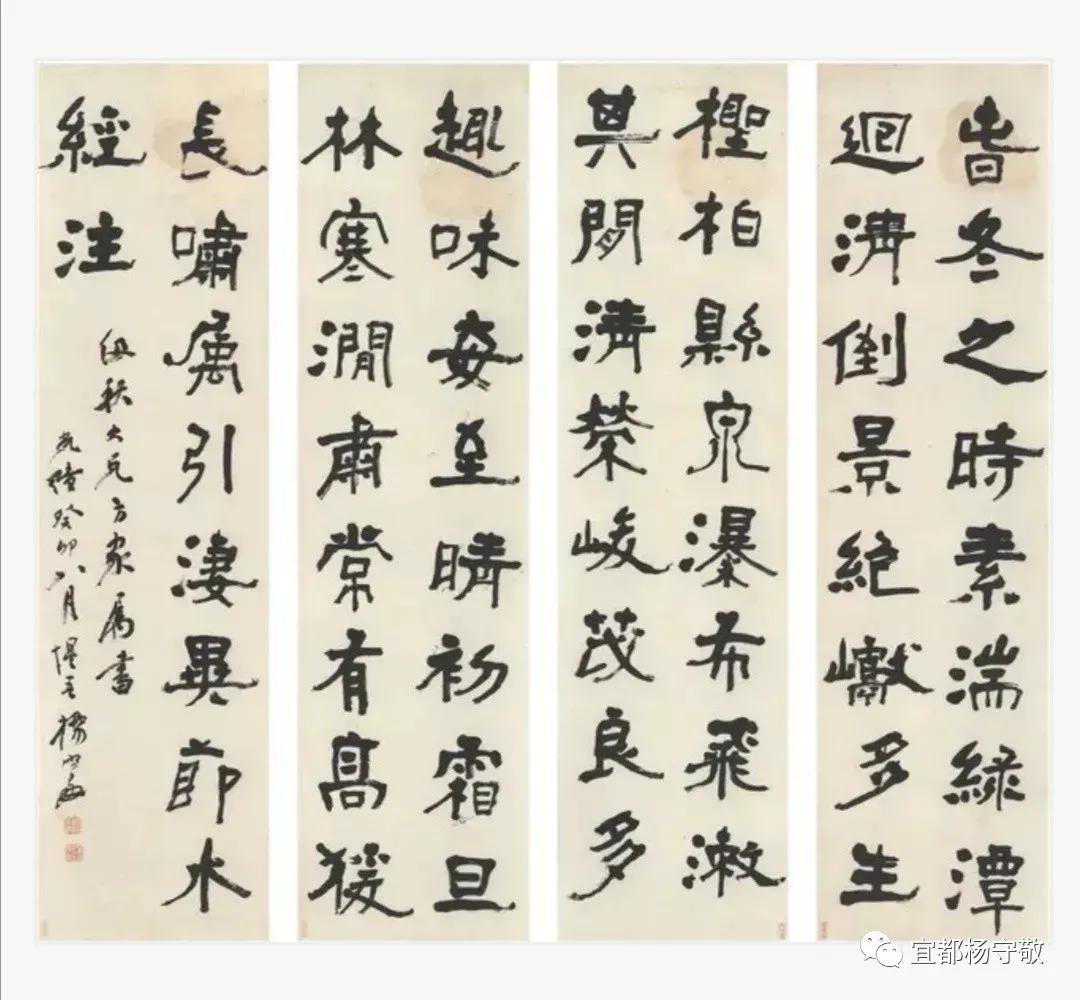 旾冬之時素湍綠潭
迴清倒景絕巘多生
檉柏縣泉瀑布飛漱
其閒清榮峻茂良多
趣味每至晴初霜旦
林寒澗肅常有高猨
長嘯屬引淒異節水
經注
紉秋大兄方家屬書
光緒癸卯八月惺吾楊守敬
宜都杨守敬